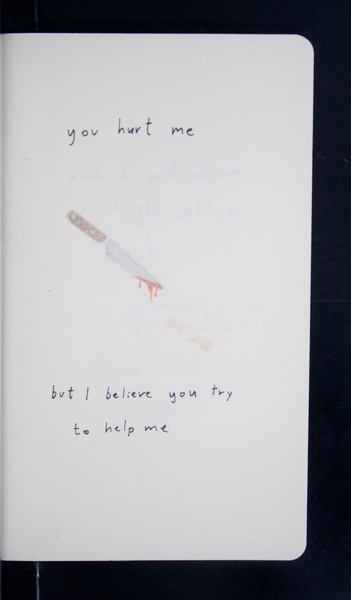 you hurt me
but I believe you try
to help me